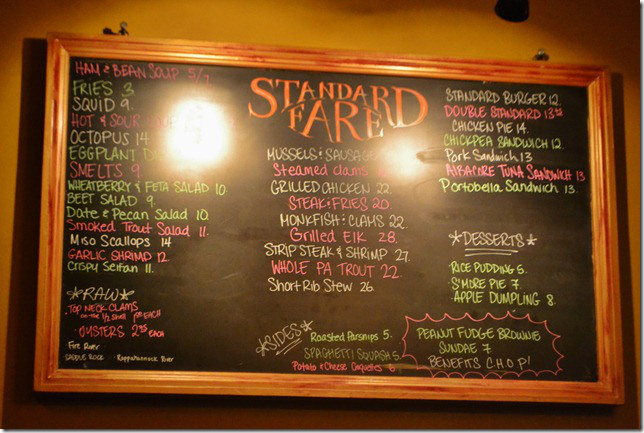 HAM & BEAN SOUP 5/7
FRIES 3
SQUID 9.
HOT & SOUR
OCTOPUS 14.
EGGPLANT
SMELTS 9.
WHEATBERRY & FETA SALAD 10.
BEET SALAD 9.
Date & Pecan Salad 10.
Smoked Trout Salad 11.
Miso Scallops 14
GARLIC SHRIMP 12.
Crispy Seitan 11.
*RAW*
TOP NECK CLAMS
on the 1/2 shell EACH
OYSTERS EACH
Fire River
Rappahannock River
STANDARD
FARE
MUSSELS & SAUSAGE
Steamed clams
GRILLED CHICKEN 22.
STEAK & FRIES 20.
MONKFISH & CLAMS 22.
Grilled Elk 28.
STRIP STEAK & SHRIMP 27.
WHOLE PA TROUT 22.
Short Rib Stew 26
*SIDES*
Roasted Parsnips 5.
SPAGHETTI SQUASH 5
Potato & Cheese Croquettes 6
STANDARD BURGER 12.
DOUBLE STANDARD 13
CHICKEN PIE 14.
CHICKPEA SANDWICH 12.
Pork Sandwich 13
ALBACORE TUNA SANDWICH 13
Portobella Sandwich 13.
*DESSERTS*
RICE PUDDING 5.
S'MORE PIE 7.
APPLE DUMPLING 8.
PEANUT FUDGE BROWNIE
SUNDAE 7.
BENEFITS C.H.O.P!